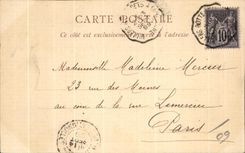 CARTE POSTALE
Ce côté est exclusivement réservé à l'adresse
Mademoiselle Madeleine Mercier
23 rue des Moines
au coin de la rue Lemercier
Paris
/09